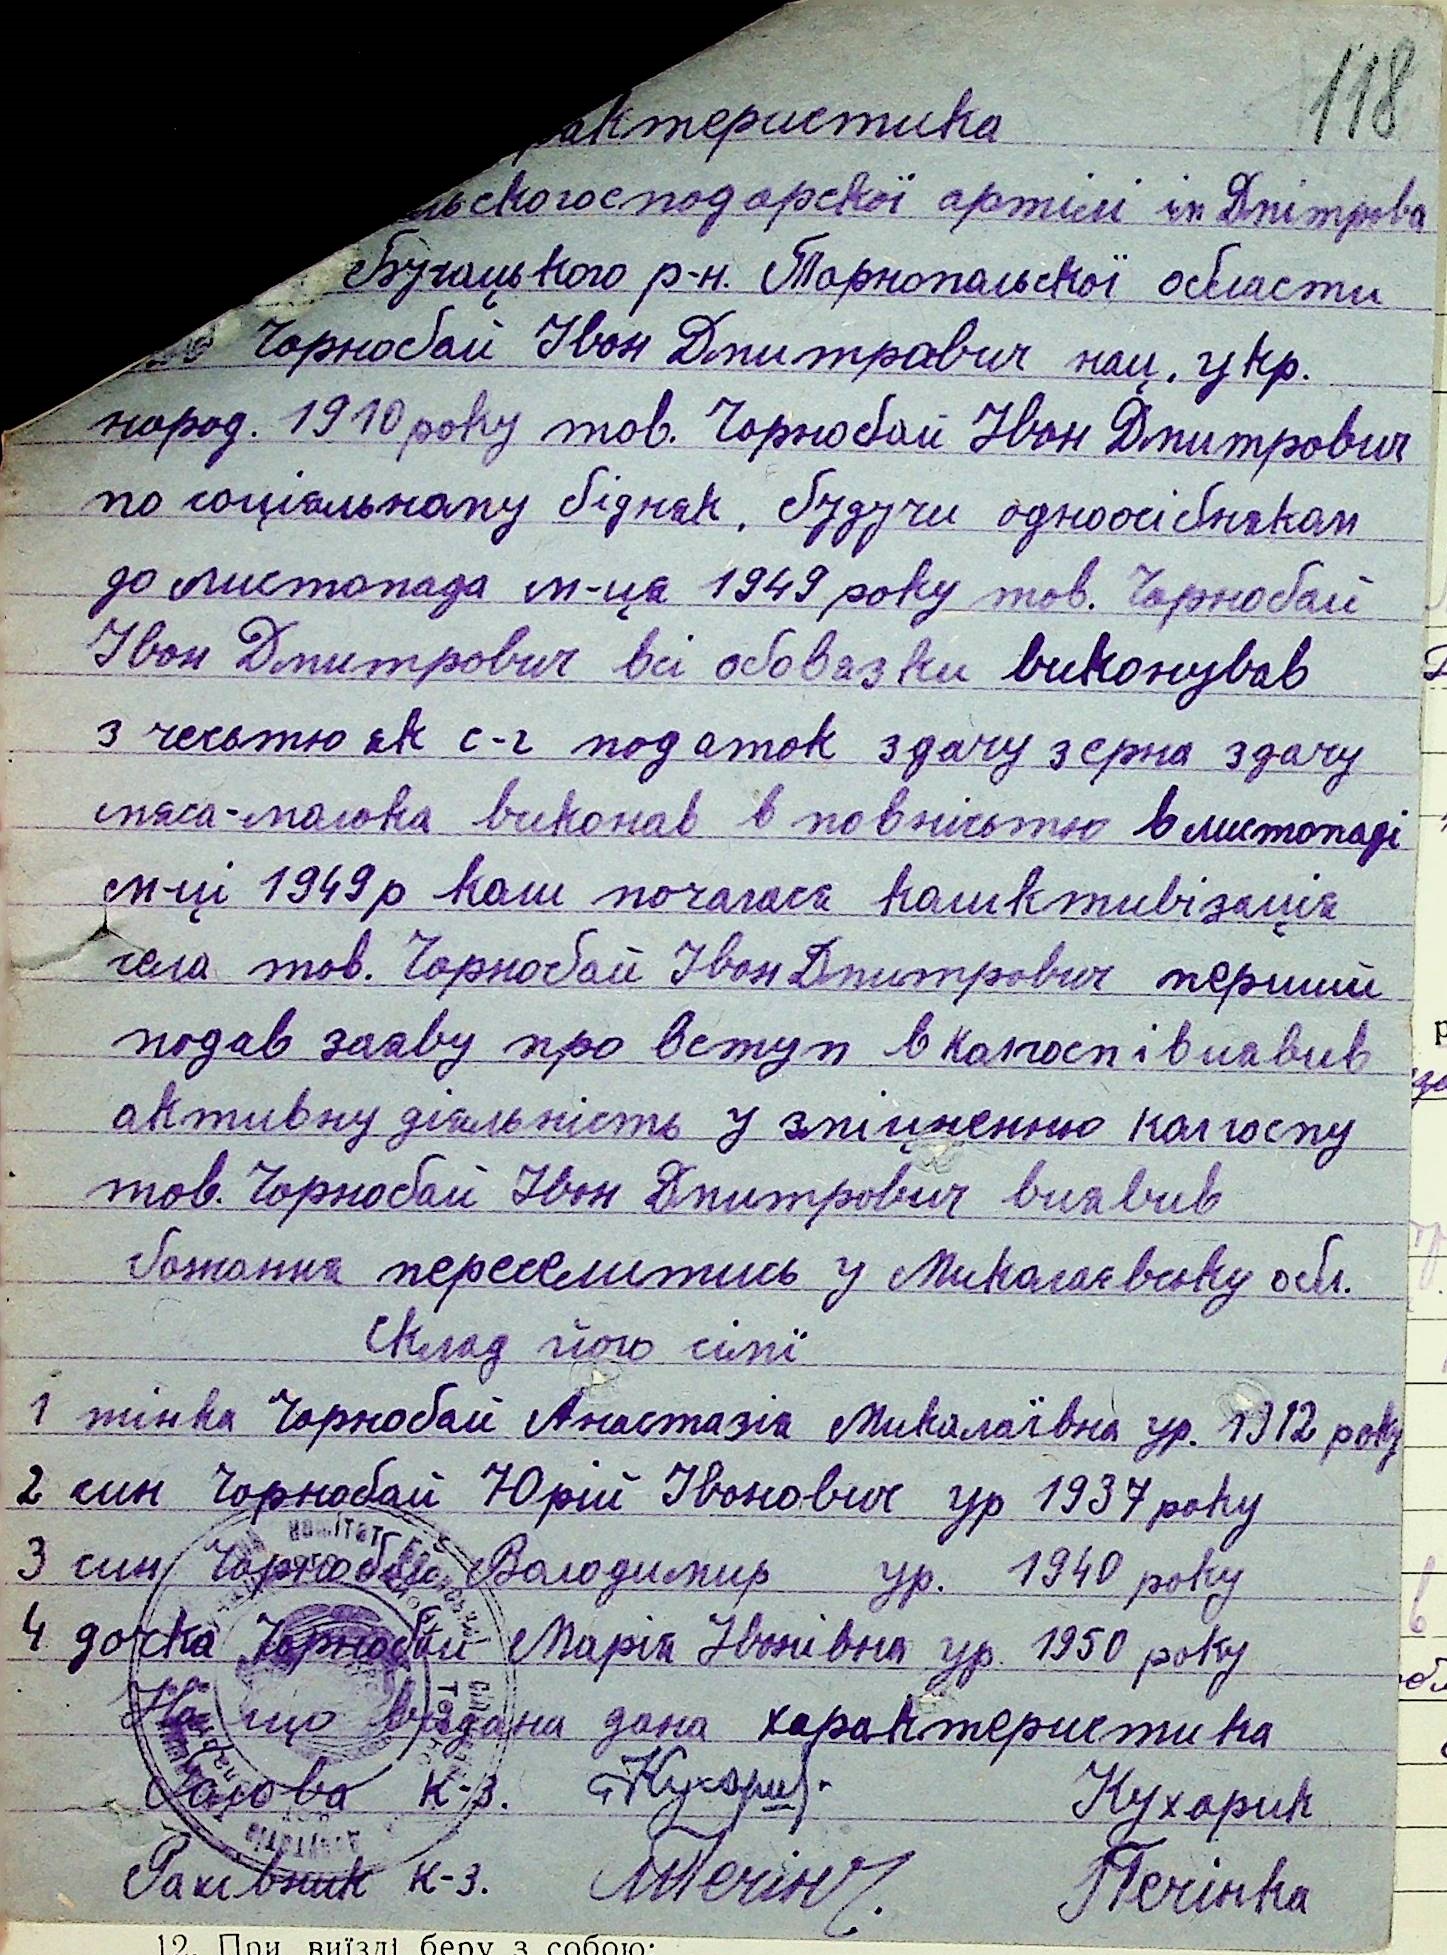 118
рактеристика
льскогосподарскої артілі ім Дмітрова
Бучацького р-н. Тарнопальскої области
Чорнобай Іван Дмитрович нац. укр.
народ. 1910 року тов. Чорнобай Іван Дмитрович
по соціяльному бідняк, будучи одноосібнякам
до листопада м-ця 1949 року тов. Чорнобай
Іван Дмитрович всі обовязки виконував
з чесьтю як с-г податок здачу зерна здачу
мяса-молока виконав в повнісьтю в листопаді
м-ці 1949 р коли почалася коликтивізація
села тов. Чорнобай Іван Дмитрович перший
подав заяву про вступ в колгосп і виявив
активну діяльність у зміцненню колгоспу
тов. Чорнобай Іван Дмитрович виявив
бажання переселитись у Микалаєвську обл.
Склад його сімї
1 жінка Чорнобай Анастазія Микалаївна ур. 1912 року
2 син Чорнобай Юрій Іванович ур 1937 року
3 син Чорнобай Володимир ур. 1940 року
4 дочка Чорнобай Марія Іванівна ур. 1950 року
На що видана дана характеристика
Галова к-з. Кухарик
Рахівник к-з. Печінка
12. При виїзді беру з собою: